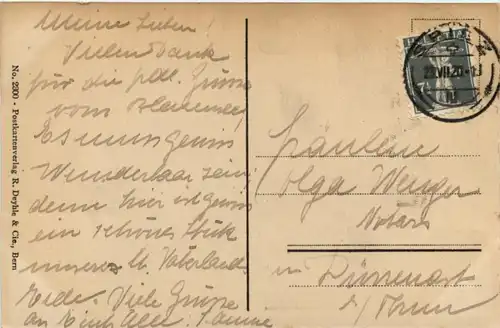 Meine Lieben!
Vielen Dank
für die frdl. Grüsse
vom
Es muss gewiss
Wunderbar sein
denn hier ist gewiss
ein schönes Stück
unseres lb. Vaterlandes
Erde. Viele Grüsse
an Euch Alle.
No. 2300 - Postkartenverlag R. Deyhle & Cie., Bern
VII.20
Fräulein
Olga Wenger
Notars
in Dürrenast
b/Thun